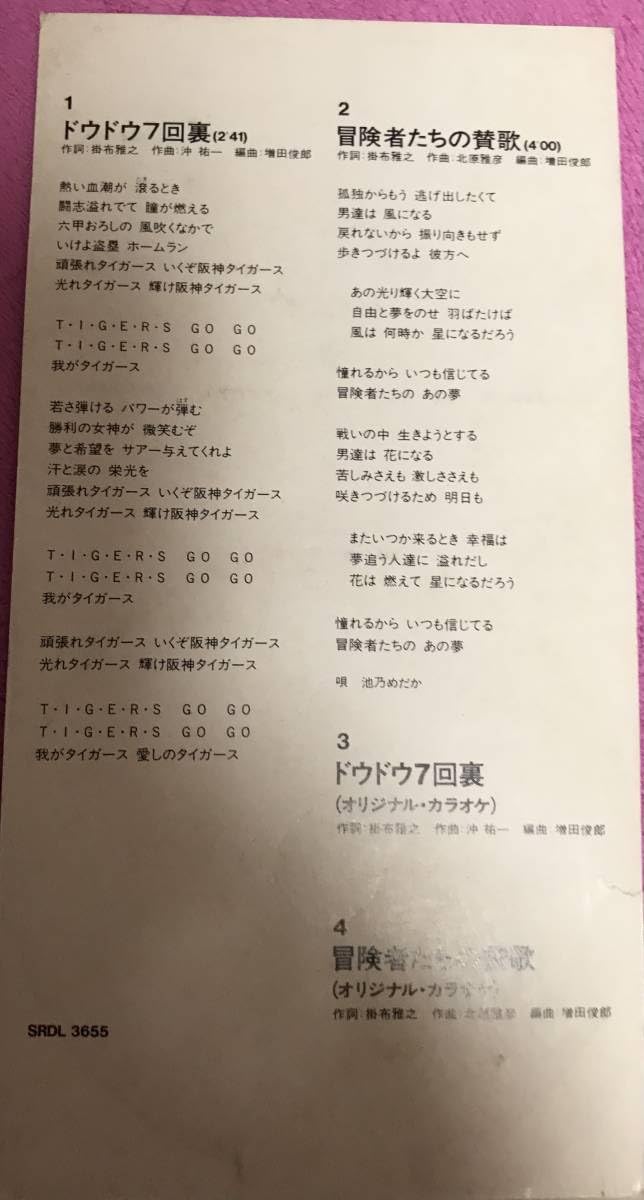 1
ドウドウ7回裏(2'41)
作詞:掛布雅之 作曲:沖 祐一 編曲:増田俊郎
熱い血潮が 滾るとき
闘志溢れでて 瞳が燃える
六甲おろしの 風吹くなかで
いけよ盗塁 ホームラン
頑張れタイガース いくぞ阪神タイガース
光れタイガース 輝け阪神タイガース
T・I・G・E・R・S GO GO
T・I・G・E・R・S GO GO
我がタイガース
若さ弾ける パワーが弾む
勝利の女神が 微笑むぞ
夢と希望を サアー与えてくれよ
汗と涙の 栄光を
頑張れタイガース いくぞ阪神タイガース
光れタイガース 輝け阪神タイガース
T・I・G・E・R・S GO GO
T・I・G・E・R・S GO GO
我がタイガース
頑張れタイガース いくぞ阪神タイガース
光れタイガース 輝け阪神タイガース
T・I・G・E・R・S GO GO
T・I・G・E・R・S GO GO
我がタイガース 愛しのタイガース
SRDL 3655
2
冒険者たちの賛歌(4'00)
作詞:掛布雅之 作曲:北原雅彦 編曲:増田俊郎
孤独からもう 逃げ出したくて
男達は 風になる
戻れないから 振り向きもせず
歩きつづけるよ 彼方へ
あの光り輝く大空に
自由と夢をのせ 羽ばたけば
風は 何時か 星になるだろう
憧れるから いつも信じてる
冒険者たちの あの夢
戦いの中 生きようとする
男達は 花になる
苦しみさえも 激しささえも
咲きつづけるため 明日も
またいつか来るとき 幸福は
夢追う人達に 溢れだし
花は 燃えて 星になるだろう
憧れるから いつも信じてる
冒険者たちの あの夢
唄 池乃めだか
3
ドウドウ7回裏
(オリジナル・カラオケ)
作詞:掛布雅之 作曲:沖 祐一 編曲:増田俊郎
4
冒険者たちの賛歌
(オリジナル・カラオケ)
作詞:掛布雅之 作曲:北原雅彦 編曲:増田俊郎